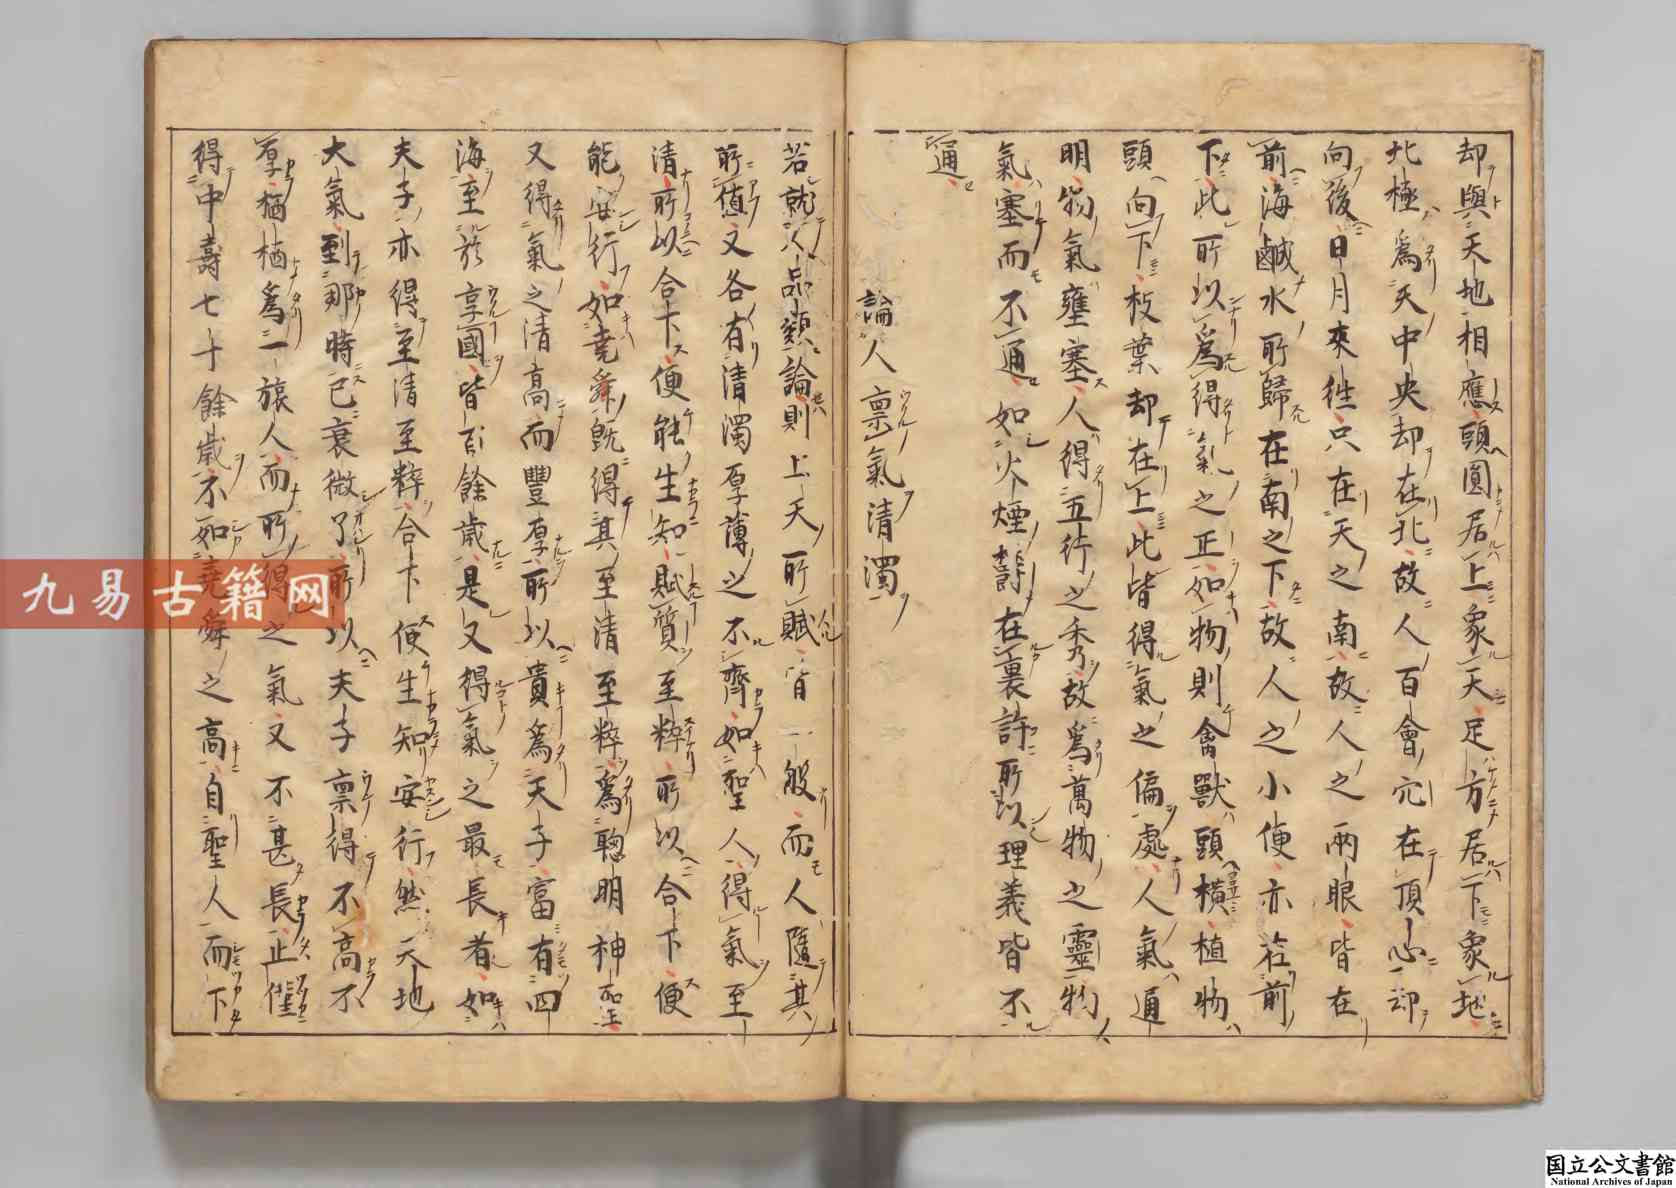 却與天地相應頭圓居上象天足方居下象地
北極爲天中央却在北故人百會穴在頂心却
向後日月來徃只在天之南故人之兩眼皆在
前海鹹水所歸在南之下故人之小便亦在前
下此所以爲得氣之正如物則禽獸頭横植物
頭向下枝葉却在上此皆得氣之偏處人氣通
明物氣壅塞人得五行之秀故爲萬物之靈物
氣塞而不通如火煙欝在裏許所以理義皆不
通
論人稟氣清濁
若就人品類論則上天所賦皆一般而人隨其
所值又各有清濁厚薄之不齊如聖人得氣至
清所以合下便能生知賦質至粹所以合下便
能安行如堯舜既得其至清至粹爲聰明神聖
又得氣之清高而豐厚所以貴爲天子富有四
海至於享國皆百餘歳是又得氣之最長者如
夫子亦得至清至粹合下便生知安行然天地
大氣到那時已衰微了所以夫子稟得不高不
厚栖栖爲一旅人而所得之氣又不甚長止僅
得中壽七十餘歳不如堯舜之高自聖人而下
九易古籍网
国立公文書館
National Archives of Japan